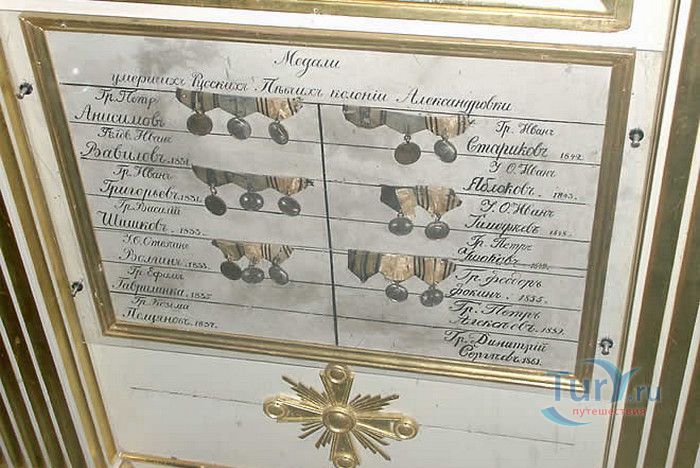 Медали
умершихъ Русскихъ Пѣвчихъ колоніи Александровки.
Гр. Петр
Анисимовъ
Иванъ
Вавиловъ. 1831.
Гр. Иванъ
Григорьевъ. 1831.
Гр. Василій
Шишковъ. 1833.
У.О. Степанъ
Волгинъ. 1833.
Гр. Ефимъ
Гаврилинка. 1835
Гр. Козьма
1837.
Гр. Иванъ
Стариковъ. 1842.
У.О. Иванъ
Яблоковъ. 1843.
У.О. Иванъ
Тимофеевъ.
Гр. Петръ
Гр. Феодоръ
Фокинъ. 1855.
Гр. Петръ
Алексѣевъ.
Гр. Димитрій
Сергѣевъ 1861.
TurY.ru
путешествия